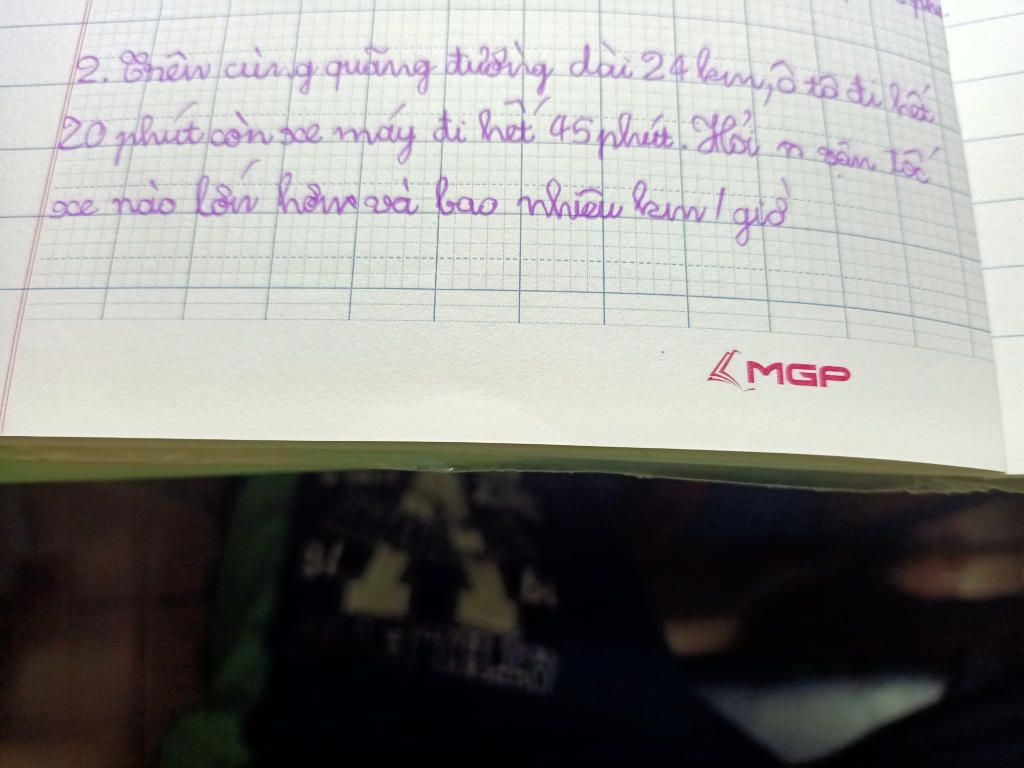 2. Trên cùng quãng đường dài 24km, ô tô đi hết
20 phút còn xe máy đi hết 45 phút. Hỏi vận tốc
xe nào lớn hơn và bao nhiêu km/giờ
MGP